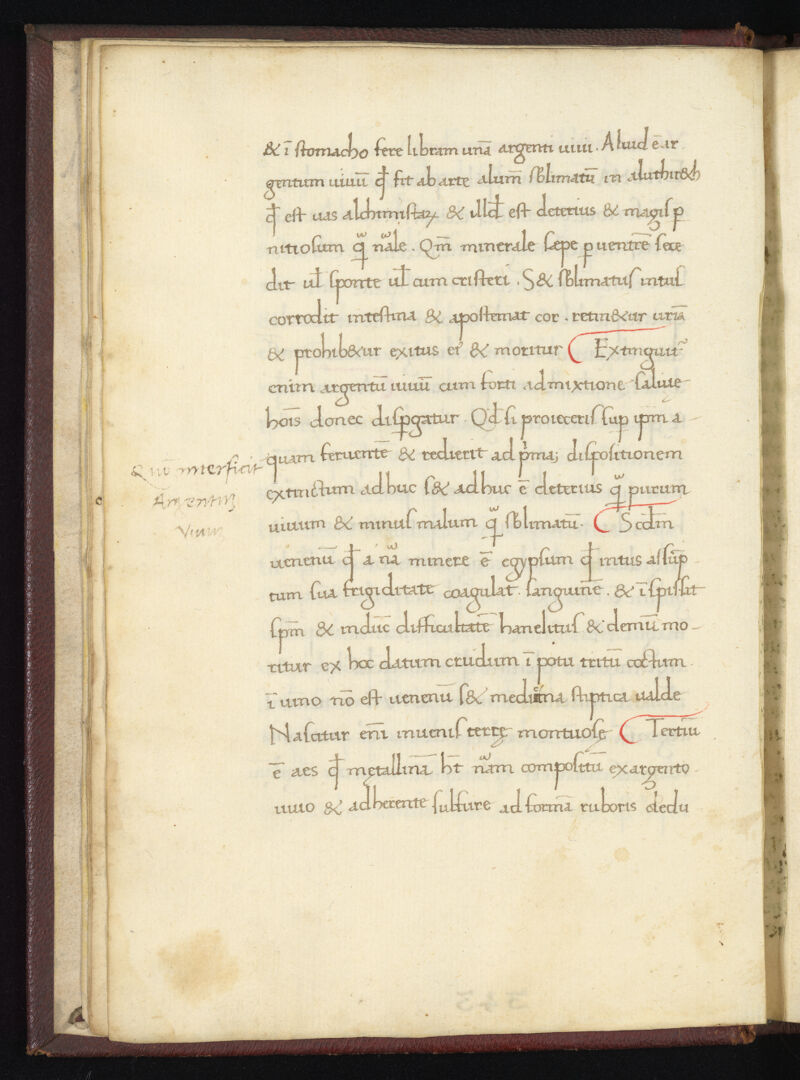 & ī stomacho fere libram unā argenti uiui . Aluid ē ar
gentum uiuū qđ fit ab arte alum̄ sblimatū in aluthir&h
qđ est uas alchimistaꝝ & illđ est deterius & magis ꝑ
nitiosum qͣ̃ nãle . Qm̄ minerale sepe ꝑ uentrē sece
dit ul̄ sponte ul̄ cum cristeri . S& sblimatus intus
corrodit intestina & apostemat cor . retin&ur uriā
& prohib&ur exitus ei᾽ & moritur Extinguit᾽
enim argentū uiuū cum forti admixtione saliuę
hoīs donec dispgatur . Qđ si proieceris sup ipm a
quam feruentē & redierit ad pͥmaꝫ dispositionem
extinctum adhuc s& adhuc ē deterius qͣ̃ purum
uiuum & minus malum qͣ̃ sblimatū . Scđm
uenenū qđ a nã minere ē egypsum qđ intus assūp
tum sua frigiditate coagulat . sanguinē . & īspissit
spm̄ & induc̄ difficultatē hanelitus & demū mo
ritur ex hoc datum crudum ī potu tritū coctum
ī uino nō est uenenū s& medicina stiptica ualde
Nascitur enī inuenis terrę montuosę Tertiū
ē aes qđ metallinā ht̄ nãm compositū ex argento
uiuo & adherente sulfure ad formā ruboris dedu
Quō interficit
Argentuꝫ
Viuum